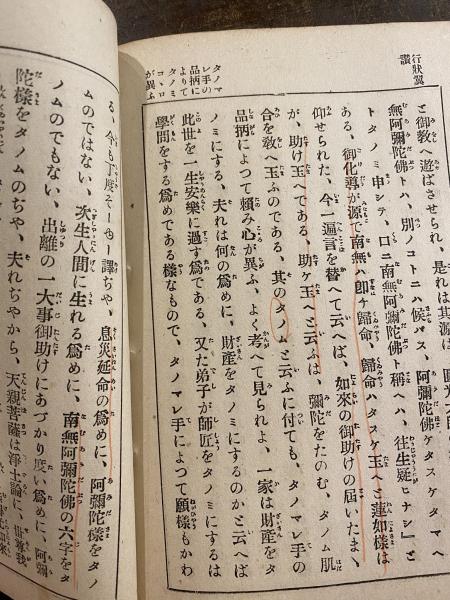 行狀翼
讚
と御敎へ遊ばさせられ、是れは其源は
無阿彌陀佛トハ、別ノコトニハ候ハス、阿彌陀佛ケタスケタマヘ
トタノミ申シテ、口ニ南無阿彌陀佛ト稱ヘハ、往生疑ヒナシ」と
ある、御化導が源で南無ハ卽チ歸命、歸命ハタスケ玉ヘと蓮如樣は
仰せられた、今一遍言を替へて云へば、如來の御助けの屆いたまゝ
が、助け玉へである、助ケ玉ヘと云ふは、彌陀をたのむ、タノム肌
合を敎へ玉ふのである、其のタノムと云ふに付ても、タノマレ手の
品柄によつて賴み心が異ふ、よく考へて見られよ、一家は財產をタ
ノミにする、夫れは何の爲めに、財產をタノミにするのかと云へば
此世を一生安樂に過す爲である、又た弟子が師匠をタノミにするは
學問をする爲めである樣なもので、タノマレ手によつて願樣もかわ
タノマ
レ手の
品柄に
よりて
タノミ
コヽロ
が異ふ
る、今も丁度そー也ー譯ぢや、息災延命の爲めに、阿彌陀樣をタノ
ムのではない、次生人間に生れる爲めに、南無阿彌陀佛の六字をタ
ノムのでもない、出離の一大事御助けにあづかり度い爲めに、阿彌
陀樣をタノムのぢや、夫れぢやから、天親菩薩は淨土論に、世尊我